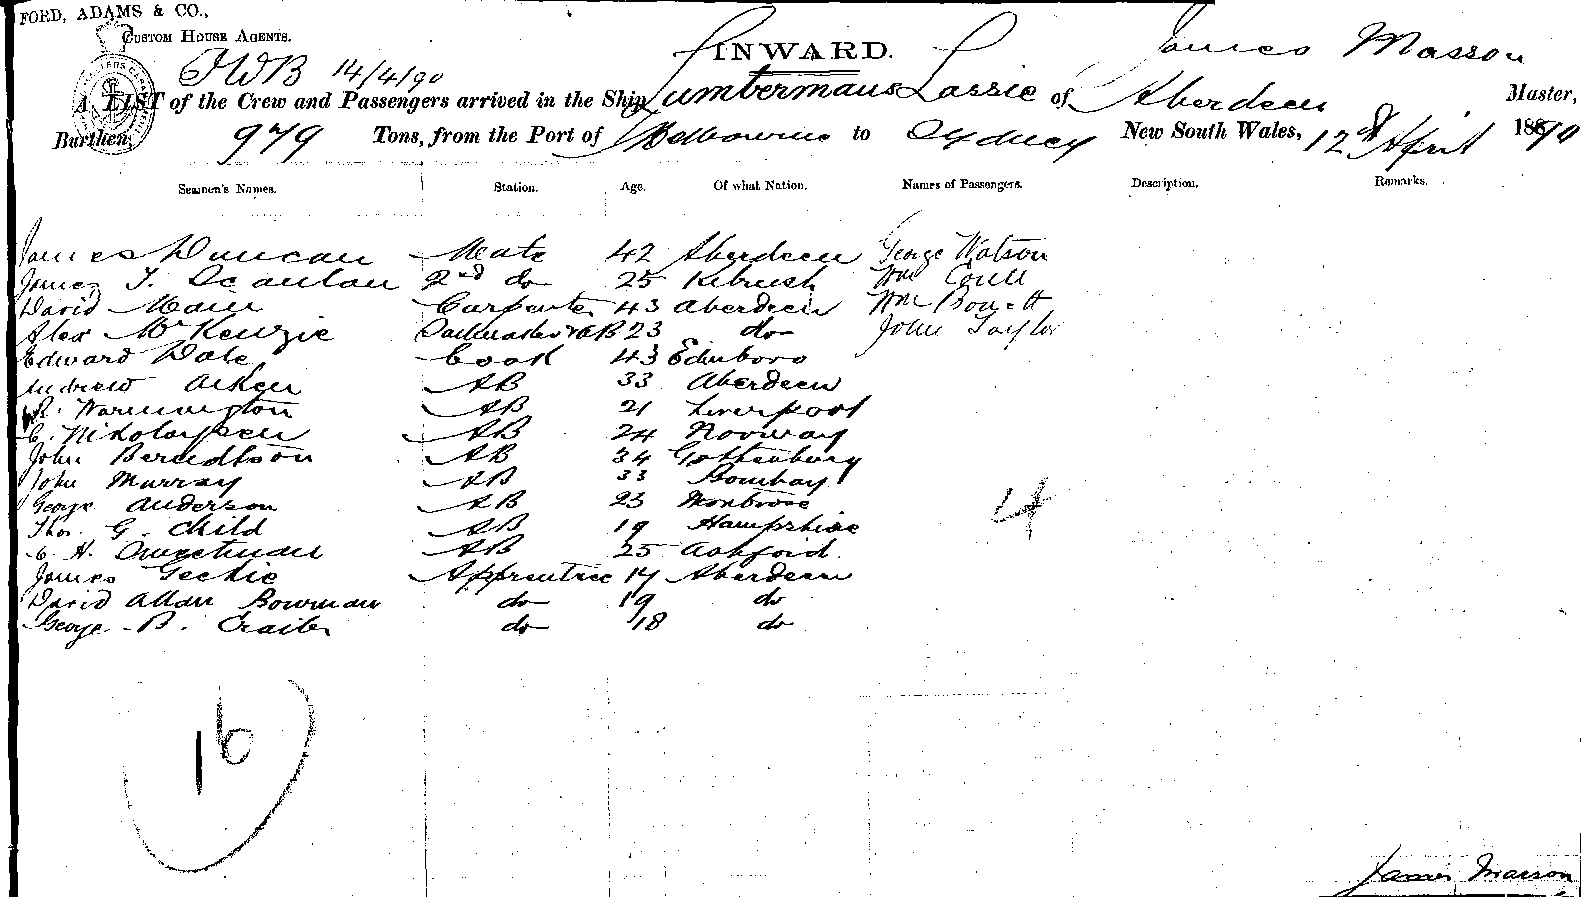 FORD, ADAMS & CO.,
CUSTOM HOUSE AGENTS.
INWARD.
James Masson
14/4/90
A LIST of the Crew and Passengers arrived in the Ship Lumbermans Lassie of Aberdeen Master,
Burthen, 979 Tons, from the Port of Melbourne to Sydney New South Wales, 12th April 1890
Seamen's Names. Station. Age. Of what Nation. Names of Passengers. Description. Remarks.
James Duncan Mate 42 Aberdeen George Watson
James T. Scanlan 2nd do 25 Kilrush Wm Coull
David Mann Carpenter 43 Aberdeen Wm
Alex McKenzie Sailmaker & AB 23 do John Taylor
Edward Dale Cook 43 Edinboro
Andrew Aiken AB 33 Aberdeen
R. Warmington AB 21 Liverpool
C. Nikolaysen AB 24 Norway
John Berndtson AB 34 Gothenburg
John Murray AB 33 Bombay
George Anderson AB 23 Montrose
Thos. G. Child AB 19 Hampshire
C. H. AB 25 Ashford
James Geekie Apprentice 17 Aberdeen
David Allan Bowman do 19 do
George B. do 18 do
4
16
James Masson